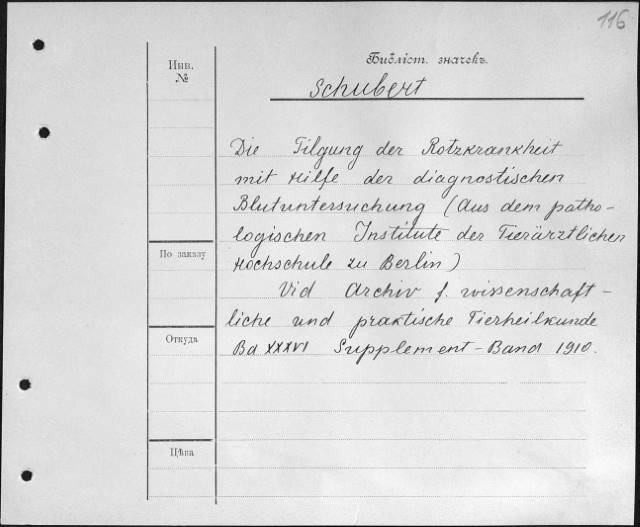 116
Библіот. значекъ.
Инв.
№
Schubert
Die Tilgung der Rotzkrankheit
mit Hilfe der diagnostischen
Blutuntersuchung (Aus dem patho-
logischen Institute der Tierärztlichen
Hochschule zu Berlin)
По заказу
Vid Archiv f. wissenschaft-
liche und praktische Tierheilkunde
Откуда
Bd XXXVI Supplement-Band 1910.
Цѣна